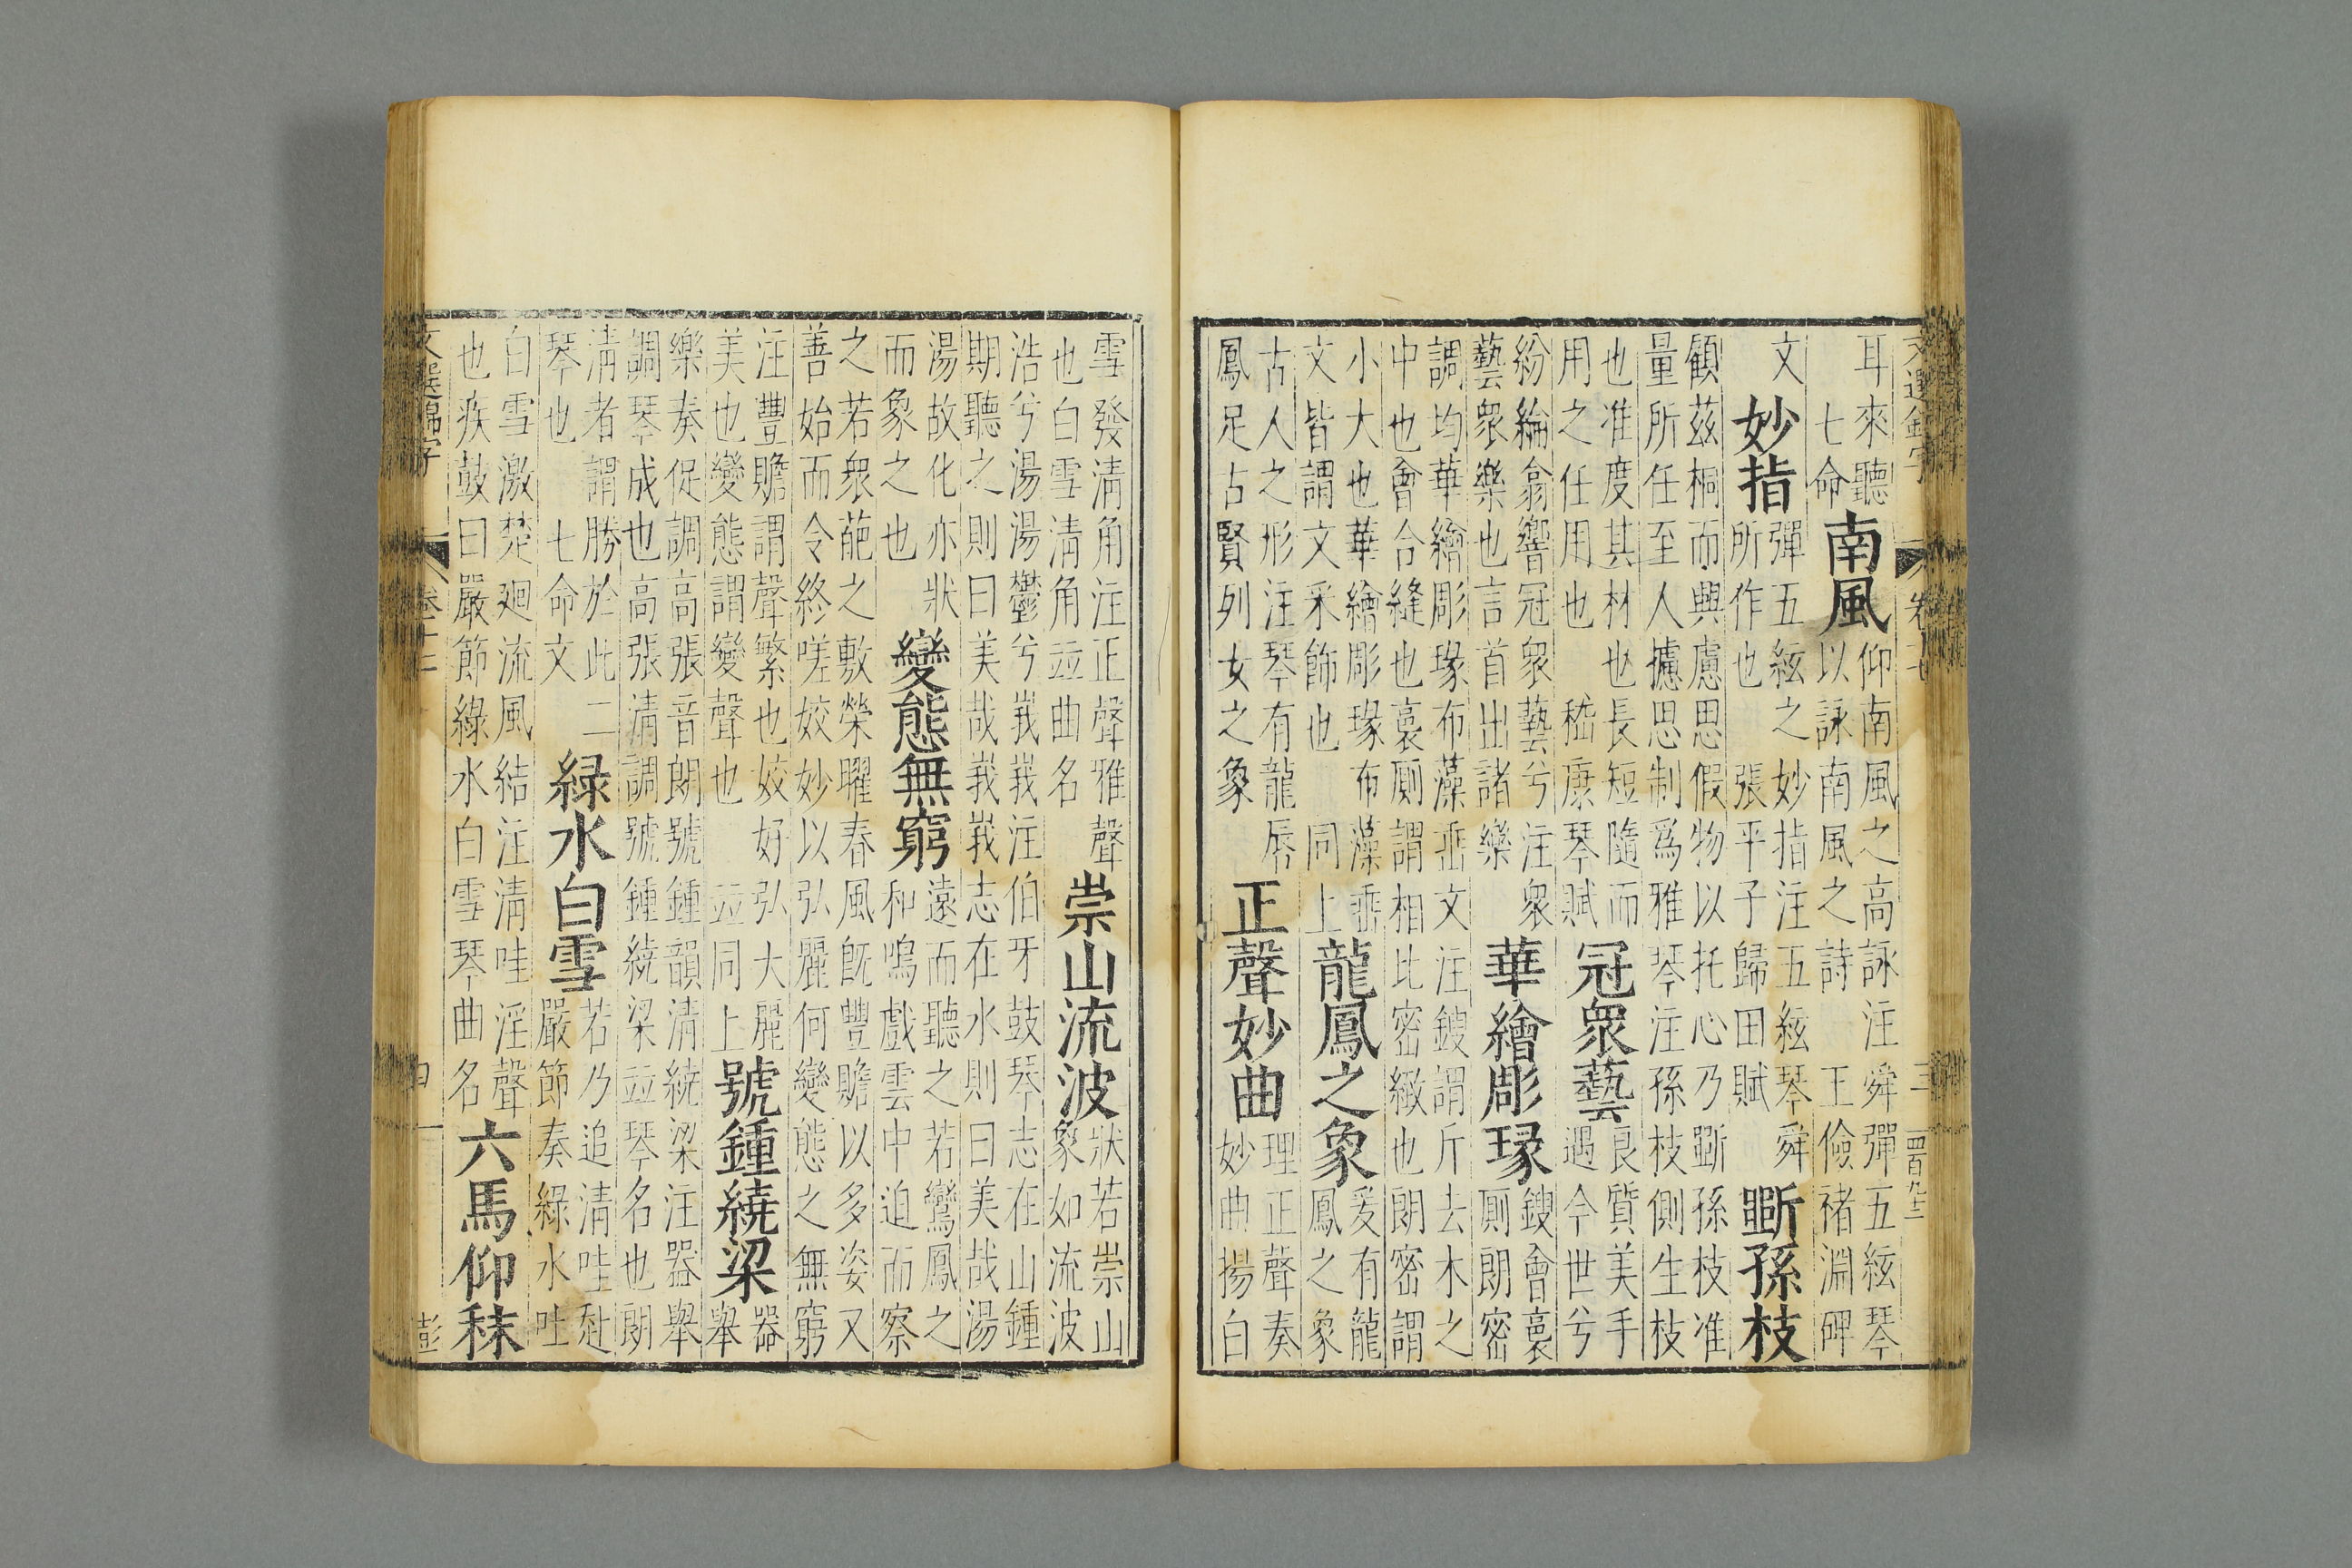 耳來聽
七命
南風
仰南風之高詠注舜彈五絃琴
以詠南風之詩　王儉褚淵碑
文
妙指
彈五絃之妙指注五絃琴舜
所作也　張平子歸田賦
斵孫枝
顧茲桐而興慮思假物以托心乃斵孫枝准
量所任至人攄思制爲雅琴注孫枝側生枝
也准度其材也長短隨而
用之任用也　嵇康琴賦
冠衆藝
良質美手
遇今世兮
紛綸翕響冠衆藝兮注衆
藝衆樂也言首出諸樂
華繪彫琢
鎪會裛
厠朗密
調均華繪彫琢布藻垂文注鎪謂斤去木之
中也會合縫也裛厠謂相比密緻也朗密謂
小大也華繪彫琢布藻垂
文皆謂文采飾也　同上
龍鳳之象
爰有龍
鳳之象
古人之形注琴有龍脣
鳳足古賢列女之象
正聲妙曲
理正聲奏
妙曲揚白
雪發清角注正聲雅聲
也白雪清角竝曲名
崇山流波
狀若崇山
象如流波
浩兮湯湯鬱兮峩峩注伯牙鼓琴志在山鍾
期聽之則曰美哉峩峩志在水則曰美哉湯
湯故化亦狀
而象之也
變態無窮
遠而聽之若鸞鳳之
和鳴戲雲中迫而察
之若衆葩之敷榮曜春風旣豐贍以多姿又
善始而令終嗟姣妙以弘麗何變態之無窮
注豐贍謂聲繁也姣好弘大麗
美也變態謂變聲也　竝同上
號鍾繞梁
器
舉
樂奏促調高張音朗號鍾韻清繞梁注器舉
調琴成也高張清調號鍾繞梁竝琴名也朗
清者謂勝於此二
琴也　七命文
緑水白雪
若乃追清哇赴
嚴節奏綠水吐
白雪激楚廻流風結注清哇淫聲
也疾鼓曰嚴節綠水白雪琴曲名
六馬仰秣
文選錦字
四
彭